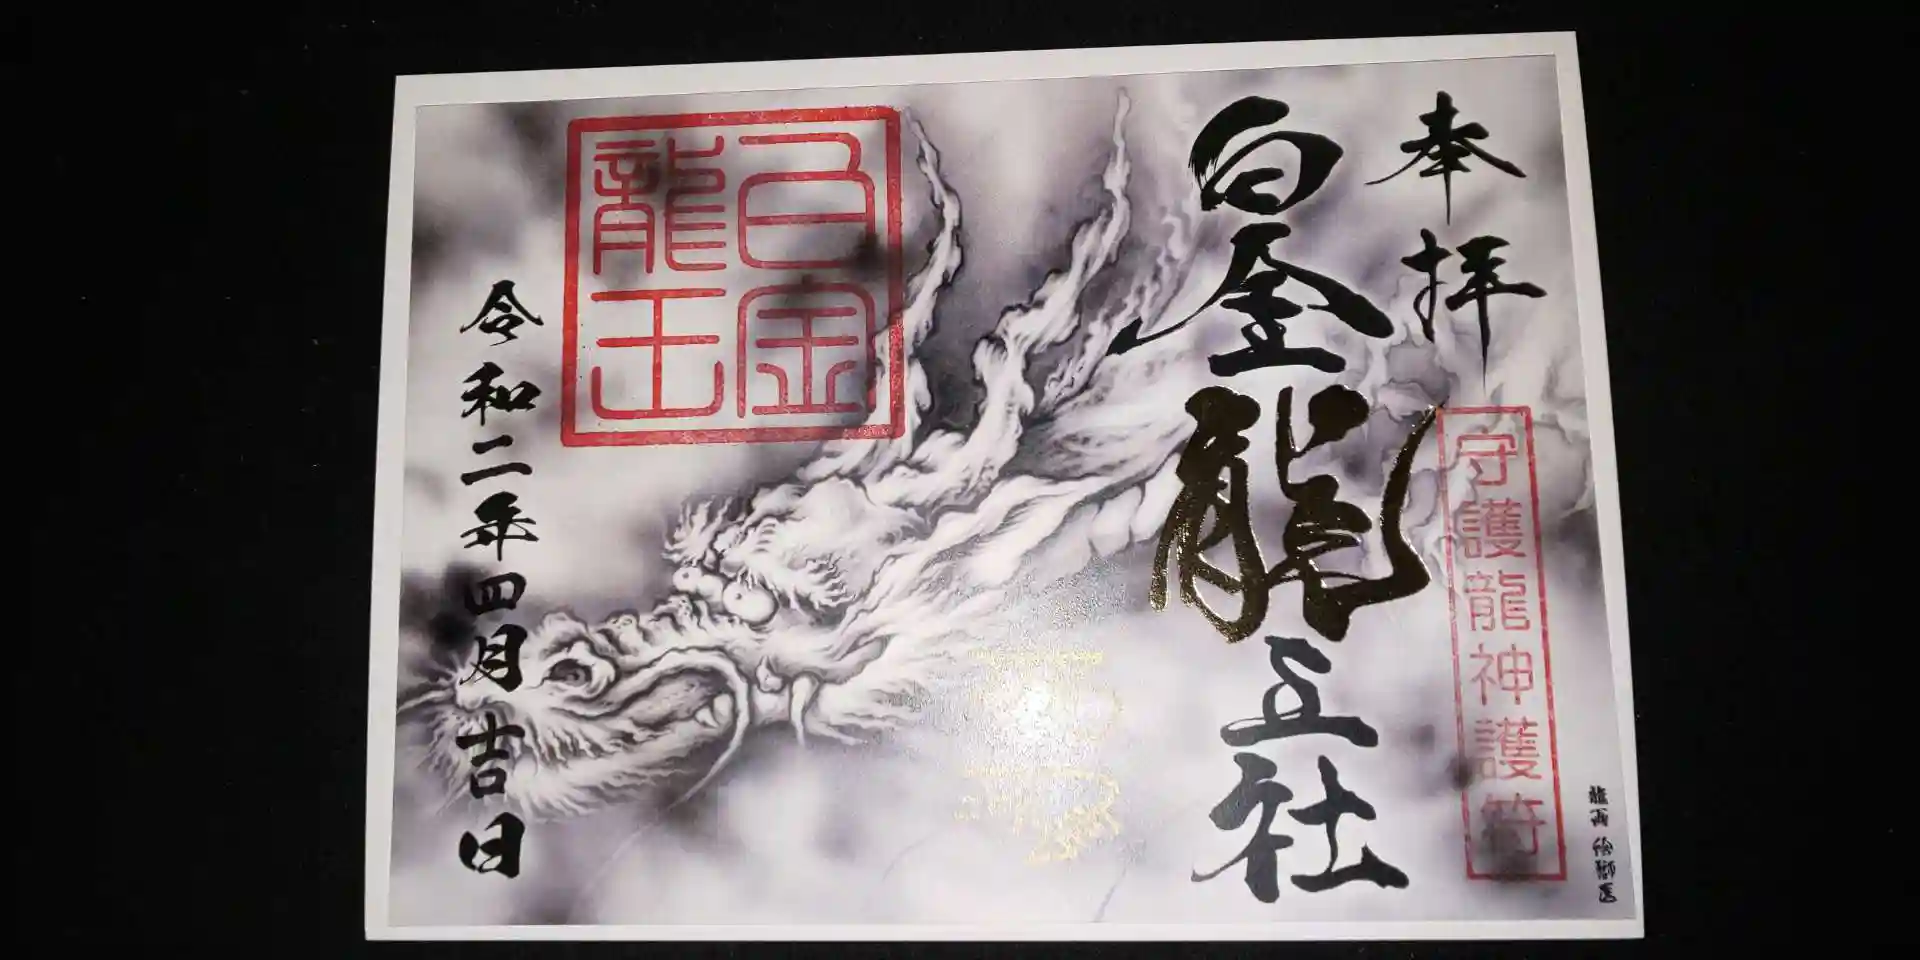 奉拝
守護龍神護符
白金龍王社
白金
龍王
令和二年四月吉日